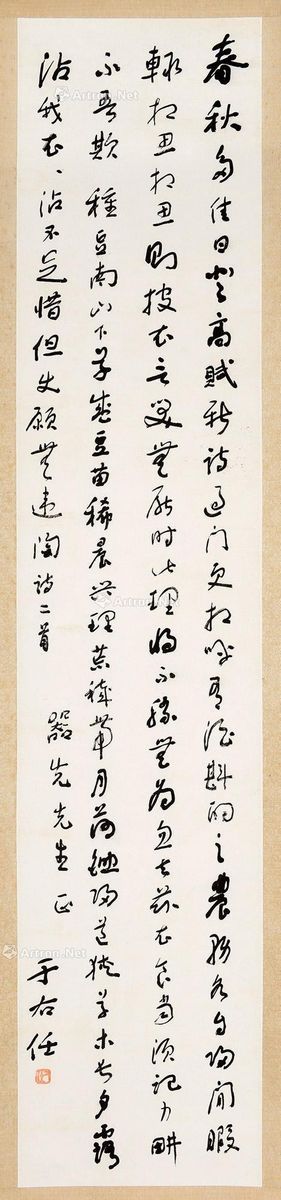 春秋多佳日登高賦新詩過門更相呼有酒斟酌之農務各自歸閒暇
輒相思相思則披衣言笑無厭時此理將不勝無為忽去茲衣食當須記力耕
不吾欺 種豆南山下草盛豆苗稀晨興理荒穢帶月荷鋤歸道狹草木長夕露
沾我衣衣沾不足惜但使願無違 陶詩二首
器先先生正
于右任
Artron.Net
Artron.Net
Artron.Net
Artron.Net